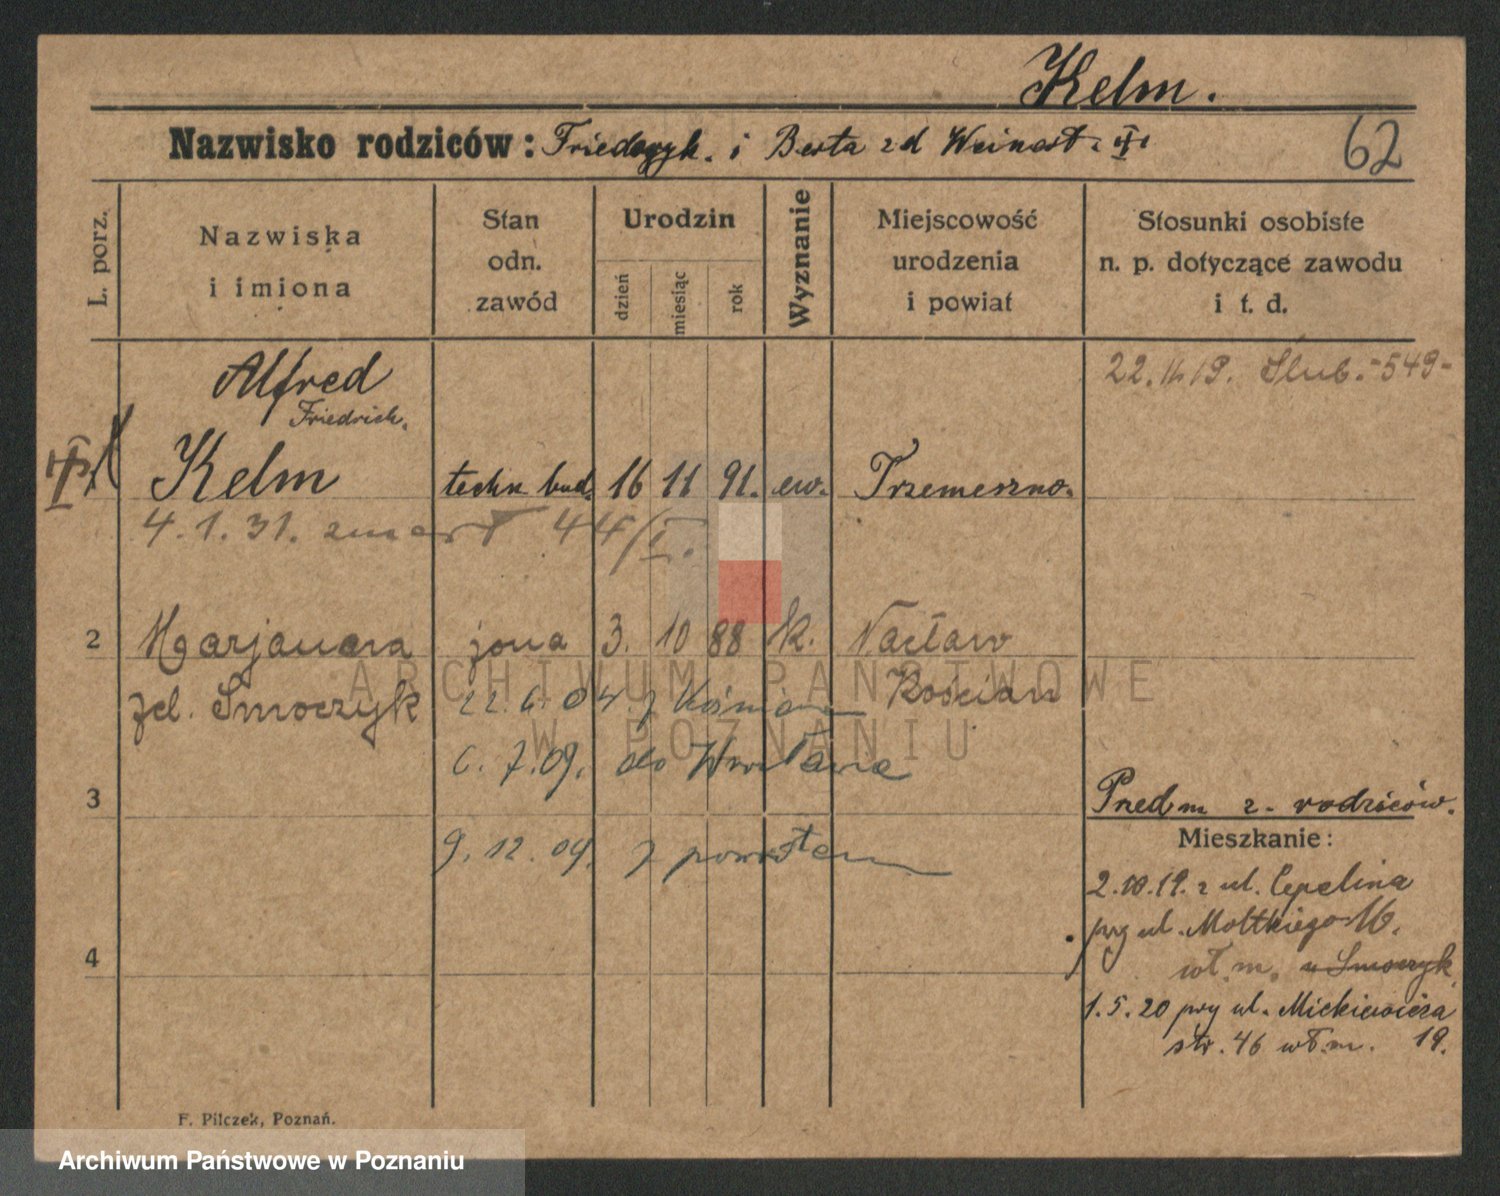 Kelm.
Nazwisko rodziców: Friedryk. i Berta zd
62
L. porz.
Nazwiska i imiona
Stan odn. zawód
Urodzin
dzień miesiąc rok
Wyznanie
Miejscowość urodzenia i powiat
Stosunki osobiste n. p. dotyczące zawodu i t. d.
Alfred
Friedrich.
22. 11. 19. Ślub. - 549 -
Kelm techn. bud. 16 11 91. ew. Trzemeszno.
4. 1. 31. zmarł 44/I.
2 Marjanna żona 3. 10 88 k. Nacław
zd. Smoczyk 22. 6. 04. z Kościan
6. 7. 09. do Wrocławia
3
Przedm z rodziców.
Mieszkanie:
9. 12. 09. z powrotem
2. 10. 19. z ul. Cepelina
przy ul. Moltkiego 16.
wł. m. u Smoczyk
4
1. 5. 20 przy ul. Mickiewicza
str. 46 wł. m. 19.
F. Pilczek, Poznań.
ARCHIWUM PAŃSTWOWE
W POZNANIU
Archiwum Państwowe w Poznaniu